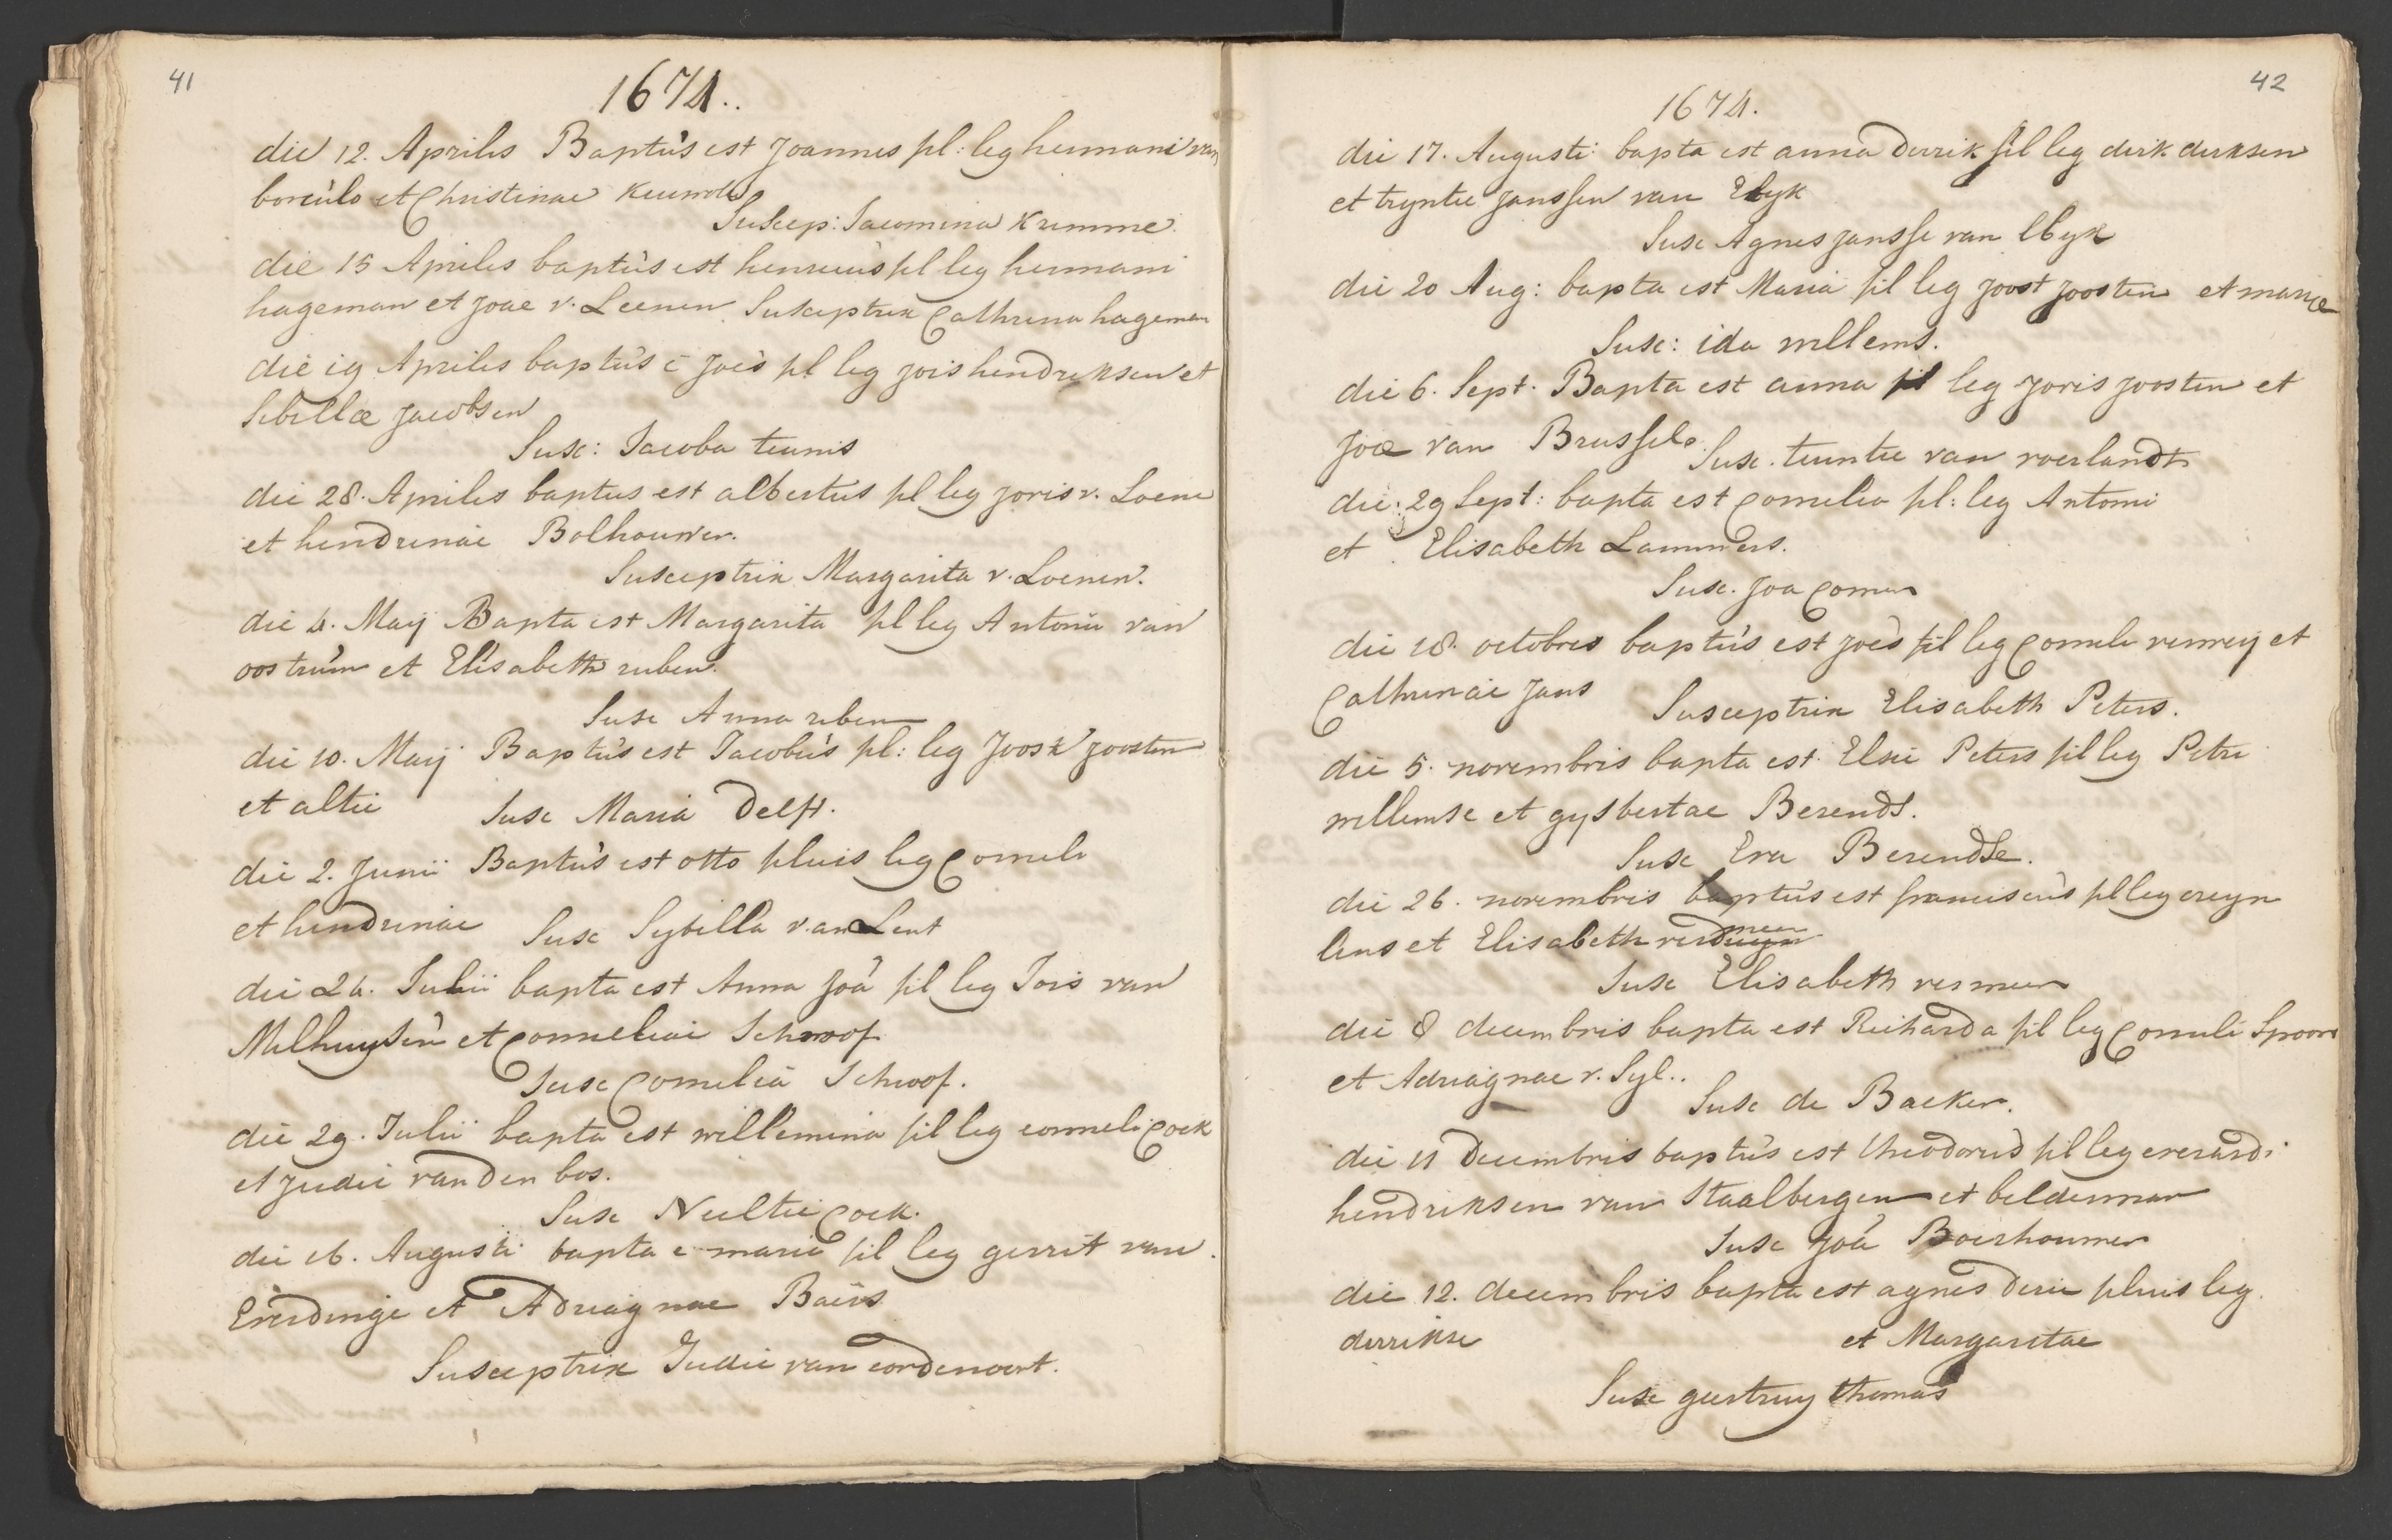 41
1674..
die 12. Aprilis Baptus est Joannes fil: leg hermani van
borculo et Christinae
Suscep: Jacomina Krumme.
die 15 Aprilis baptus est henricus fil leg hermani
hageman et Joae v. Leenen Susceptrix Cathrina hageman
die 19 Aprilis baptus e Joes fil leg jois hendriksen et
Sibillae Jacobsen
Susc: Jacoba teunis
die 28. Aprilis baptus est albertus fil leg joris v. Loene
et hendrinae Bolhouwer.
Susceptrix Margarita v. Loenen.
die 4. Maij Bapta est Margarita fil leg Antonii van
oostrum et Elisabeth ruben.
Susc Anna ruben
die 10. Maij Baptus est Jacobus fil: leg Joost joosten
et altie Susc Maria Delft.
die 2. Junii Baptus est otto filius leg Corneli
et hendrinae Susc Sybilla van Lent
die 24. Julii bapta est Anna Joa fil leg Jois van
Milhuysen et Corneliae Schroof
Susc Cornelia Schroof.
die 29. Julii bapta est willemina fil leg corneli Cock
et judie van den bos.
Susc Neeltie Cock.
die 16. Augusti bapta e maria fil leg gerrit van
Everdinge et Adriagnae Baers
Susceptrix Judie van cordenoort.
42
1674.
die 17. Augusti bapta est anna Dirrik fil leg dirk dirksen
et tryntie janssen van Ebyk
Susc Agnes jansse van Ebyk
die 20 Aug: bapta est Maria fil leg joost joosten et mariae
Susc: ida willems.
die 6. Sept. Bapta est anna fil leg joris joosten et
Joae van Brussels. Susc. teuntie van roerlandt
die 29 Sept: bapta est Cornelia fil: leg Antoni
et Elisabeth Lammers.
Susc. Joa
die 18. octobris baptus est joes fil leg Corneli verweij et
Cathrinae Jans Susceptrix Elisabeth Peters.
die 5. novembris bapta est Elsie Peters fil leg Petri
willemse et gysbertae Berends.
Susc Eva Berendse.
die 26. novembris baptus est franciscus fil leg creyn
lens et Elisabeth vermeer
Susc Elisabeth vermeer
die 8 decembris bapta est Richarda fil leg Corneli Spoor
et Adriagnae v. Syl..
Susc de Backer.
die 11 Decembris baptus est theodorus fil leg everardi
hendriksen van Staalbergen et belderman
Susc Joa Boerhouwer
die 12. decembris bapta est agnes Derie filius leg.
derrikse et Margaritae
Susc geertruy thomas